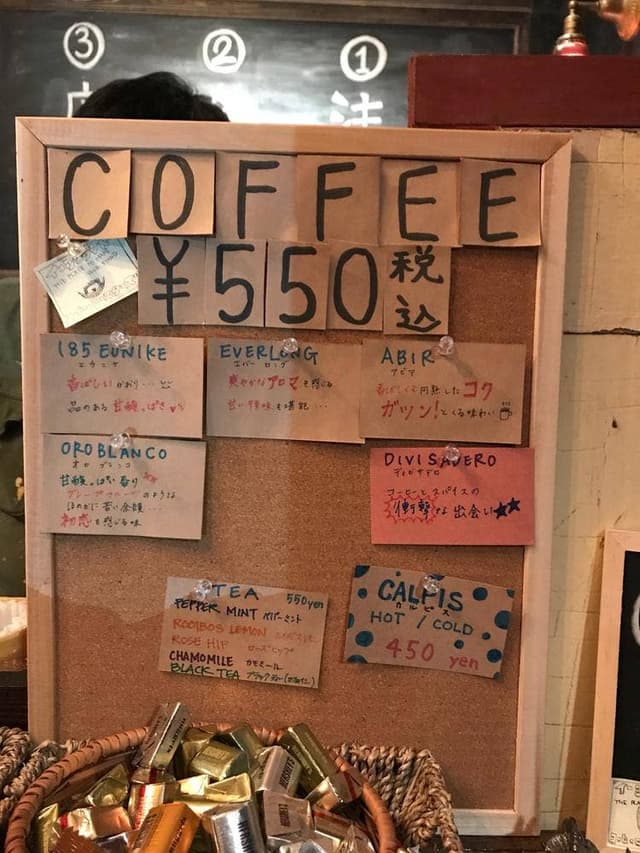 ③ ② ①
法
COFFEE
¥550税込
185 EUNIKE
エウニケ
香ばしいかおり…と
品のある甘酸っぱさ
EVERLONG
エバーロング
爽やかなアロマを感じる
甘い後味も堪能…
ABIR
アビア
香ばしくて円熟したコク
ガツン!とくる味わい
OROBLANCO
オロブランコ
甘酸っぱい香り
グレープフルーツのような
ほのかに苦い余韻…
初恋を感じる味
DIVISADERO
ディビサデロ
コーヒーとスパイスの
衝撃な出会い
TEA 550yen
PEPPER MINT ペパーミント
ROOIBOS LEMON
ROSE HIP ローズヒップ
CHAMOMILE カモミール
BLACK TEA ブラックティー
CALPIS
カルピス
HOT / COLD
450 yen
HERSHEY'S